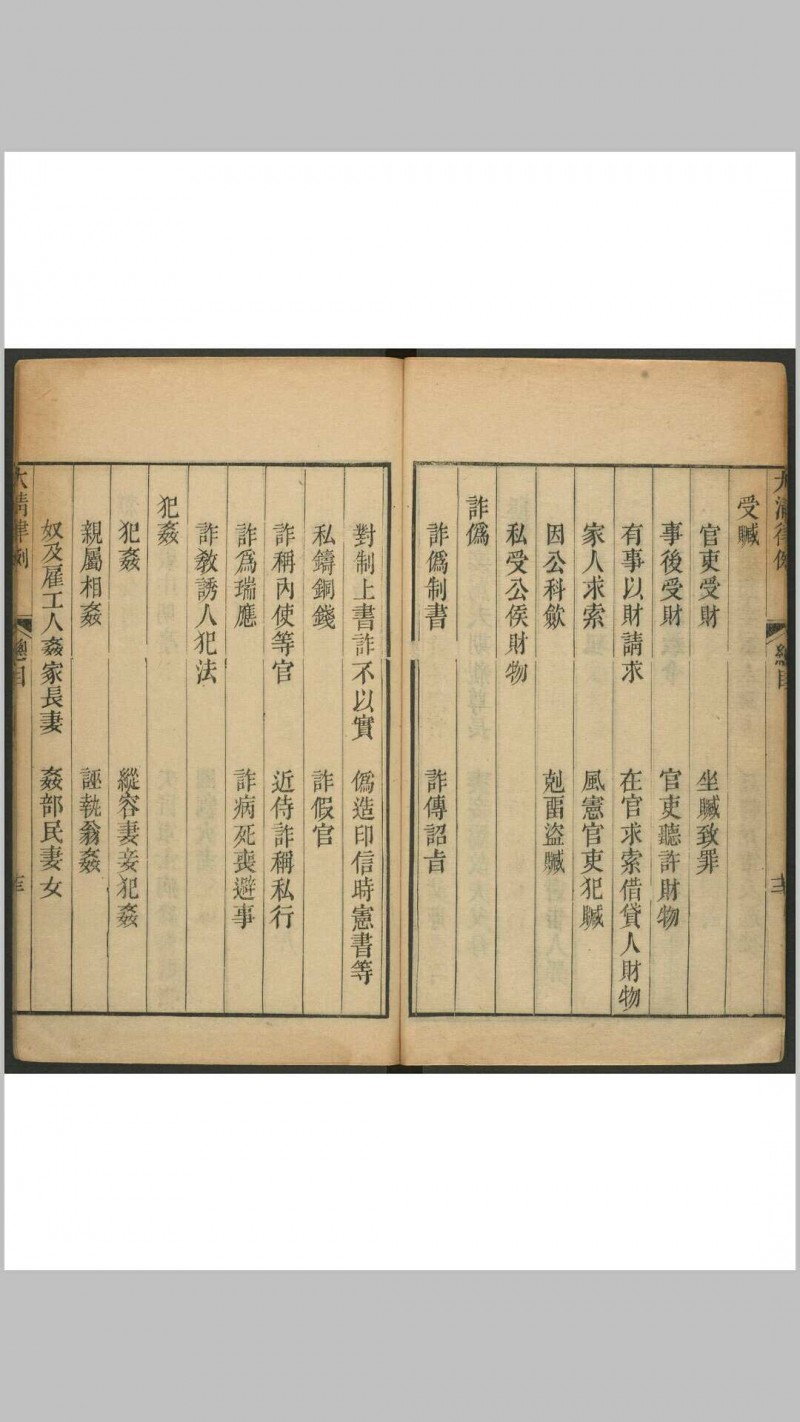 大清律例 總目
受贓
官吏受財 坐贓致罪
事後受財 官吏聽許財物
有事以財請求 在官求索借貸人財物
家人求索 風憲官吏犯贓
因公科斂 剋畱盜贓
私受公侯財物
詐僞
詐僞制書 詐傳詔旨
對制上書詐不以實 僞造印信時憲書等
私鑄銅錢 詐假官
詐稱內使等官 近侍詐稱私行
詐爲瑞應 詐病死喪避事
詐教誘人犯法
犯姦
犯姦 縱容妻妾犯姦
親屬相姦 誣執翁姦
奴及雇工人姦家長妻 姦部民妻女
大清律例 總目